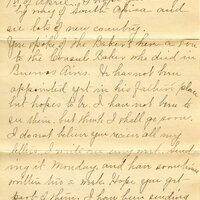 by way of South Africa and
see lots of new country.
You spoke of the Bakers here a son
to the Consul Baker who died in
Buenos Aires. He has not been
appointed yet in his father's place
but hopes to be. I have not been to
see them, but think I shall go soon.
I do not believe you receive all my
letters. I write one every week.
ing it Monday, and have sometimes
written twice a week. Hope you get
part of them. I have been sending